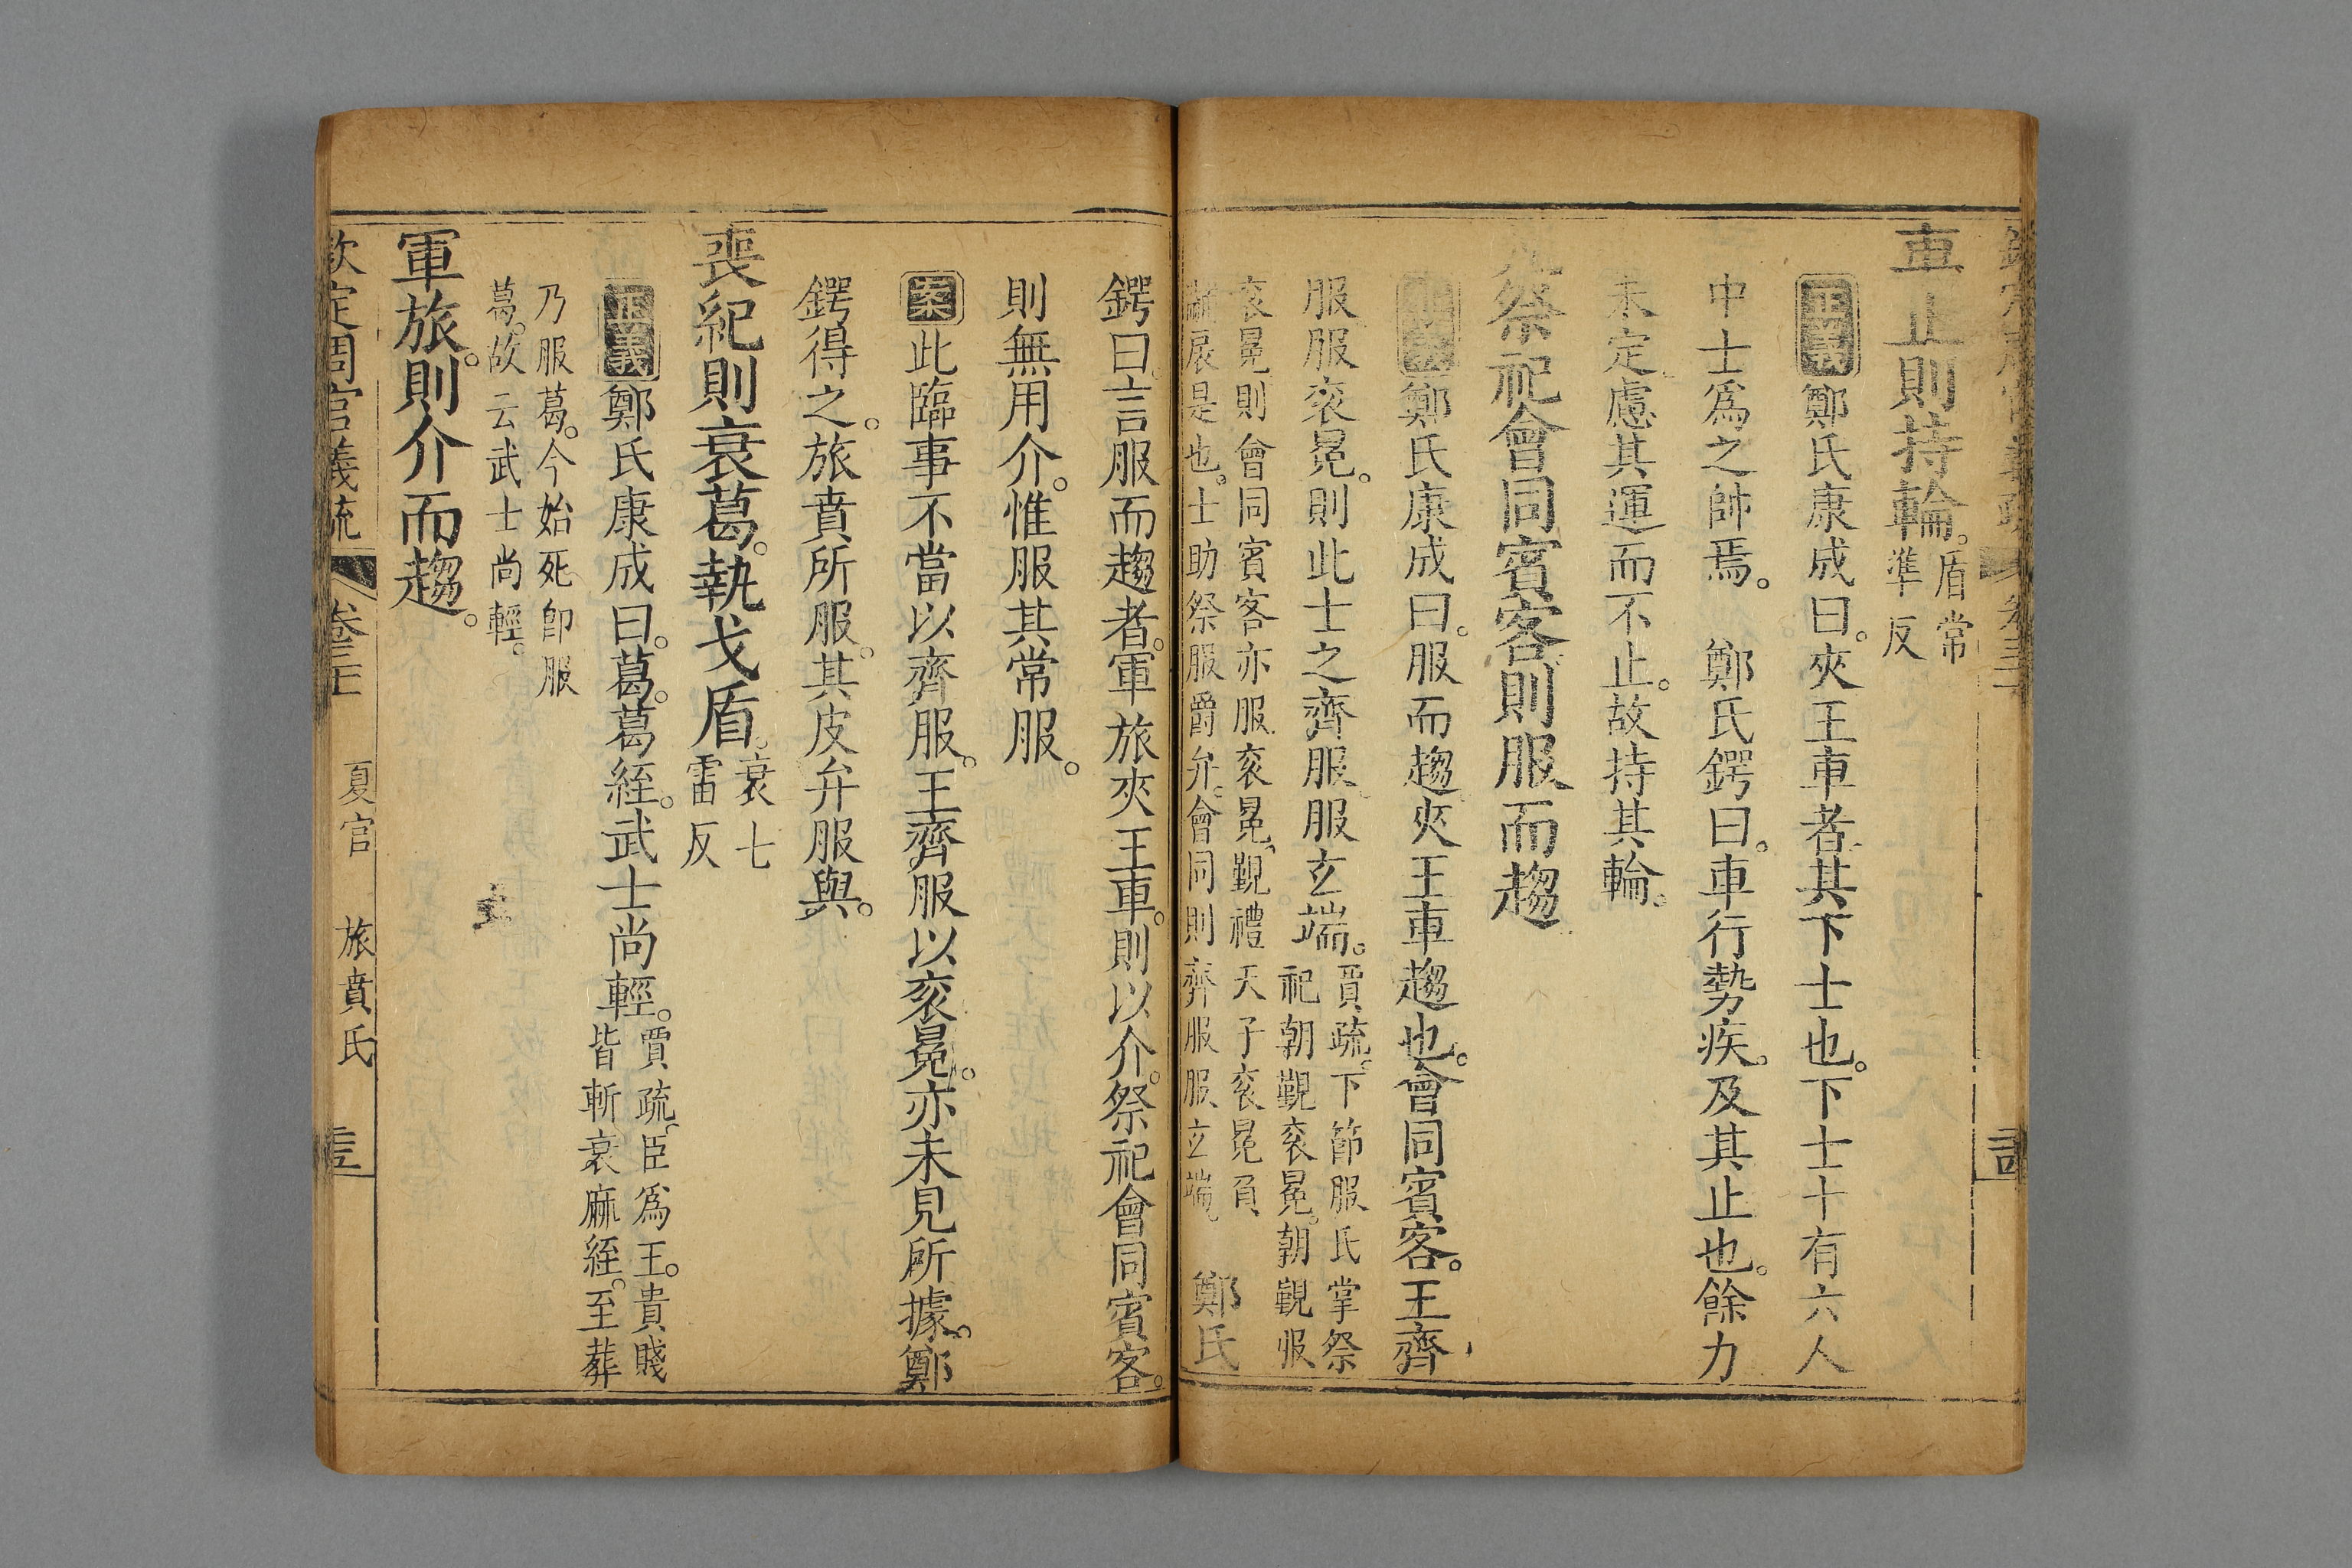 車止則持輪。盾常準反
正義鄭氏康成曰。夾王車者。其下士也。下士十有六人
中士爲之帥焉。 鄭氏鍔曰。車行勢疾。及其止也。餘力
未定。慮其運而不止。故持其輪。
祭祀會同賓客則服而趨
正義鄭氏康成曰。服而趨。夾王車趨也。會同賓客。王齊
服服袞冕。則此士之齊服。服玄端。賈疏。下節服氏掌祭祀朝覲袞冕。朝覲服
袞冕則會同賓客亦服袞冕。覲禮天子袞冕負
黼扆是也。士助祭服爵弁。會同則齊服服玄端。 鄭氏
鍔曰。言服而趨者。軍旅夾王車。則以介。祭祀會同賓客。
則無用介。惟服其常服。
案此臨事不當以齊服。王齊服以袞冕。亦未見所據。鄭
鍔得之。旅賁所服。其皮弁服與。
喪紀則衰葛。執戈盾。衰七雷反
正義鄭氏康成曰。葛。葛絰。武士尚輕。賈疏。臣爲王。貴賤皆斬衰麻絰。至葬
乃服葛。今始死卽服
葛。故云武士尚輕。
軍旅。則介而趨。
欽定周官義疏 卷三十一 夏官 旅賁氏